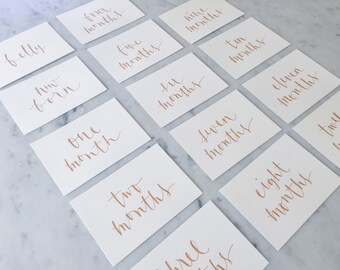 belly
new
born
one
month
two
months
three
months
four
months
five
months
six
months
seven
months
eight
months
nine
months
ten
months
eleven
months